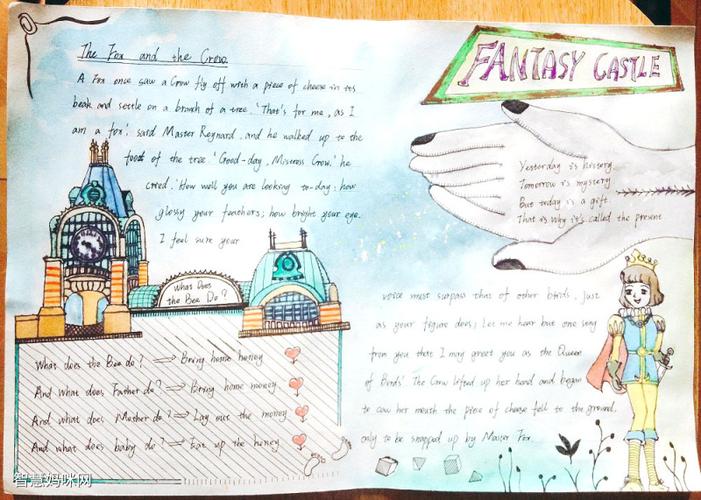 The Fox and the Crow.
A Fox once saw a Crow fly off with a piece of cheese in its
beak and settle on a branch of a tree. 'That's for me, as I
am a fox'. said Master Reynard. and he walked up to the
foot of the tree. 'Good-day, Mistress Crow.' he
cried. 'How well you are looking to-day: how
glossy your feathers; how bright your eye.
I feel sure your
What Does
the Bee Do?
What does the Bee do? Bring home honey
And what does Father do? Bring home money
And what does Mother do? Lay out the money
And what does baby do? Eat up the honey
FANTASY CASTLE
Yesterday is history.
Tomorrow is mystery
But today is a gift.
That is why it's called the present
voice must surpass that of other birds. Just
as your figure does; Let me hear but one song
from you that I may greet you as the Queen
of Birds'. The Crow lifted up her head and began
to caw her mouth the piece of cheese fell to the ground,
only to be snapped up by Master Fox.
智慧妈咪网